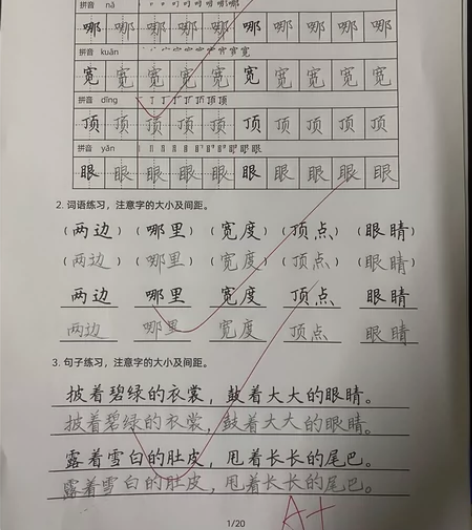 拼音 nǎ
哪 哪 哪 哪 哪 哪 哪 哪 哪 哪
拼音 kuān
宽 宽 宽 宽 宽 宽 宽 宽 宽 宽
拼音 dǐng
顶 顶 顶 顶 顶 顶 顶 顶 顶 顶
拼音 yǎn
眼 眼 眼 眼 眼 眼 眼 眼 眼 眼
2. 词语练习，注意字的大小及间距。
（两边）（哪里）（宽度）（顶点）（眼睛）
（两边）（哪里）（宽度）（顶点）（眼睛）
两边 哪里 宽度 顶点 眼睛
两边 哪里 宽度 顶点 眼睛
3. 句子练习，注意字的大小及间距。
披着碧绿的衣裳，鼓着大大的眼睛。
披着碧绿的衣裳，鼓着大大的眼睛。
露着雪白的肚皮，甩着长长的尾巴。
露着雪白的肚皮，甩着长长的尾巴。
A+
1/20